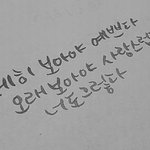 세히 보아야 예쁘다
오래 보아야 사랑스럽
너도 그렇다